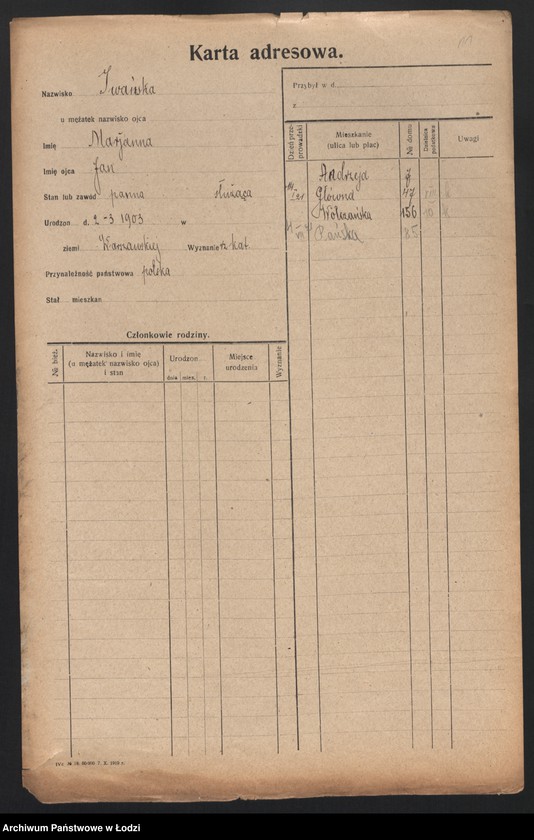 Karta adresowa.
Nazwisko Iwańska
u mężatek nazwisko ojca
Imię Marjanna
Imię ojca Jan
Stan lub zawód panna służąca
Urodzon d. 2-3 1903 w
ziemi Warszawskiej Wyznanie rz-kat
Przynależność państwowa polska
Stał mieszkan
Przybył w d.
z
Dzień przeprowadzki
Mieszkanie
(ulica lub plac)
№ domu
Dzielnica podatkowa
Uwagi
Andrzeja 7
Główna
Wólczańska 156
Pańska 85
Członkowie rodziny.
№ bież.
Nazwisko i imię
(u mężatek nazwisko ojca)
i stan
Urodzon
dnia mies. r.
Miejsce
urodzenia
Wyznanie
Archiwum Państwowe w Łodzi